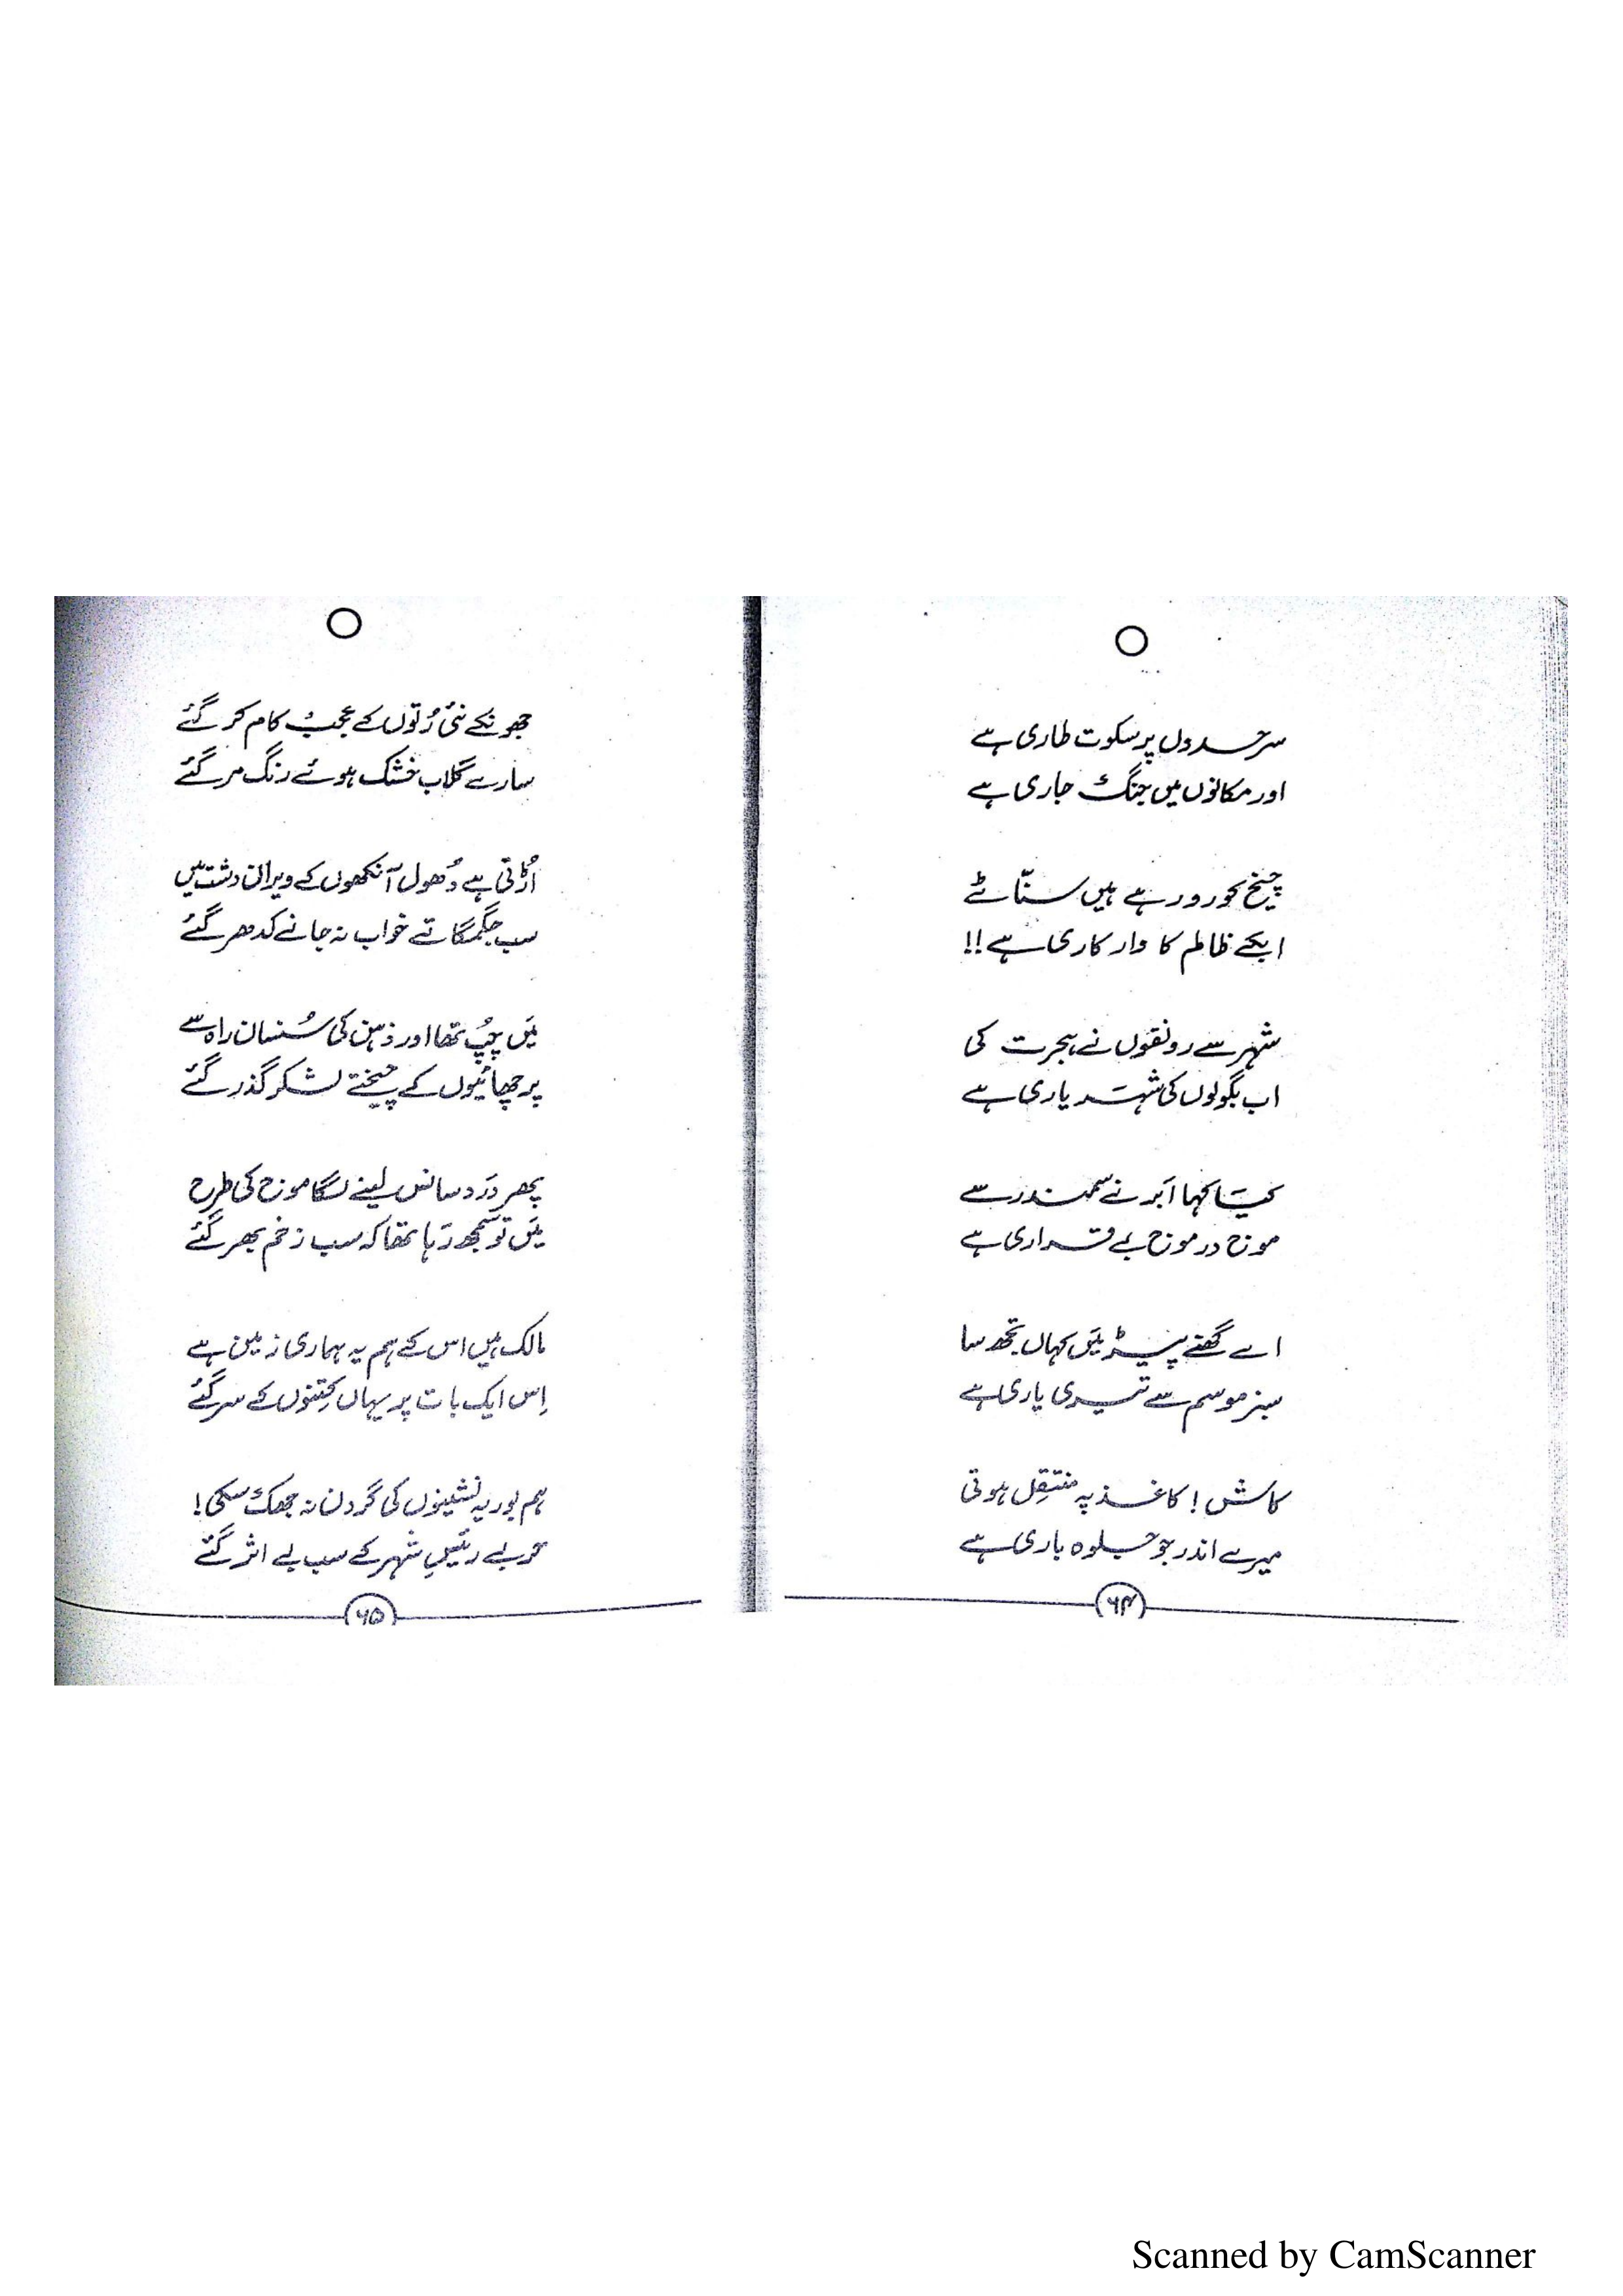 سرحدوں پر سکوت طاری ہے
اور مکانوں میں جنگ جاری ہے
چیخ کو رو رہے ہیں سنّاٹے
ابکے ظالم کا وار کاری ہے!!
شہر سے رونقوں نے ہجرت کی
اب بگولوں کی شہَر یاری ہے
کیَا کہا اَبر نے سمندر سے
موج در موج بے قراری ہے
اے گھنے پیڑ میَں کہاں تجھ سا
سبز موسم سے تیری یاری ہے
کاش! کاغذ پہ منتقِل ہوتی
میرے اندر جو جلوہ باری ہے
۶۴
جھونکے نئی رُتوں کے عجب کام کر گئے
سارے گلاب خشک ہوئے رنگ مر گئے
اُڑتی ہے دُھول آنکھوں کے ویران دشت میں
سب جگمگاتے خواب نہ جانے کدھر گئے
میَں چپُ تھا اور ذہن کی سُنسان راہ سے
پرچھائیوں کے چیختے لشکر گذر گئے
پھر دَرد سانس لینے لگا موج کی طرح
میَں تو سمجھ رَہا تھا کہ سب زخم بھر گئے
مالک ہیں اس کے ہم یہ ہماری زمین ہے
اِس ایک بات پر یہاں کِتنوں کے سر گئے
ہم بوریہ نشینوں کی گردن نہ جھک سکی!
حربے رئیسِ شہر کے سب بے اثر گئے
۶۵
Scanned by CamScanner